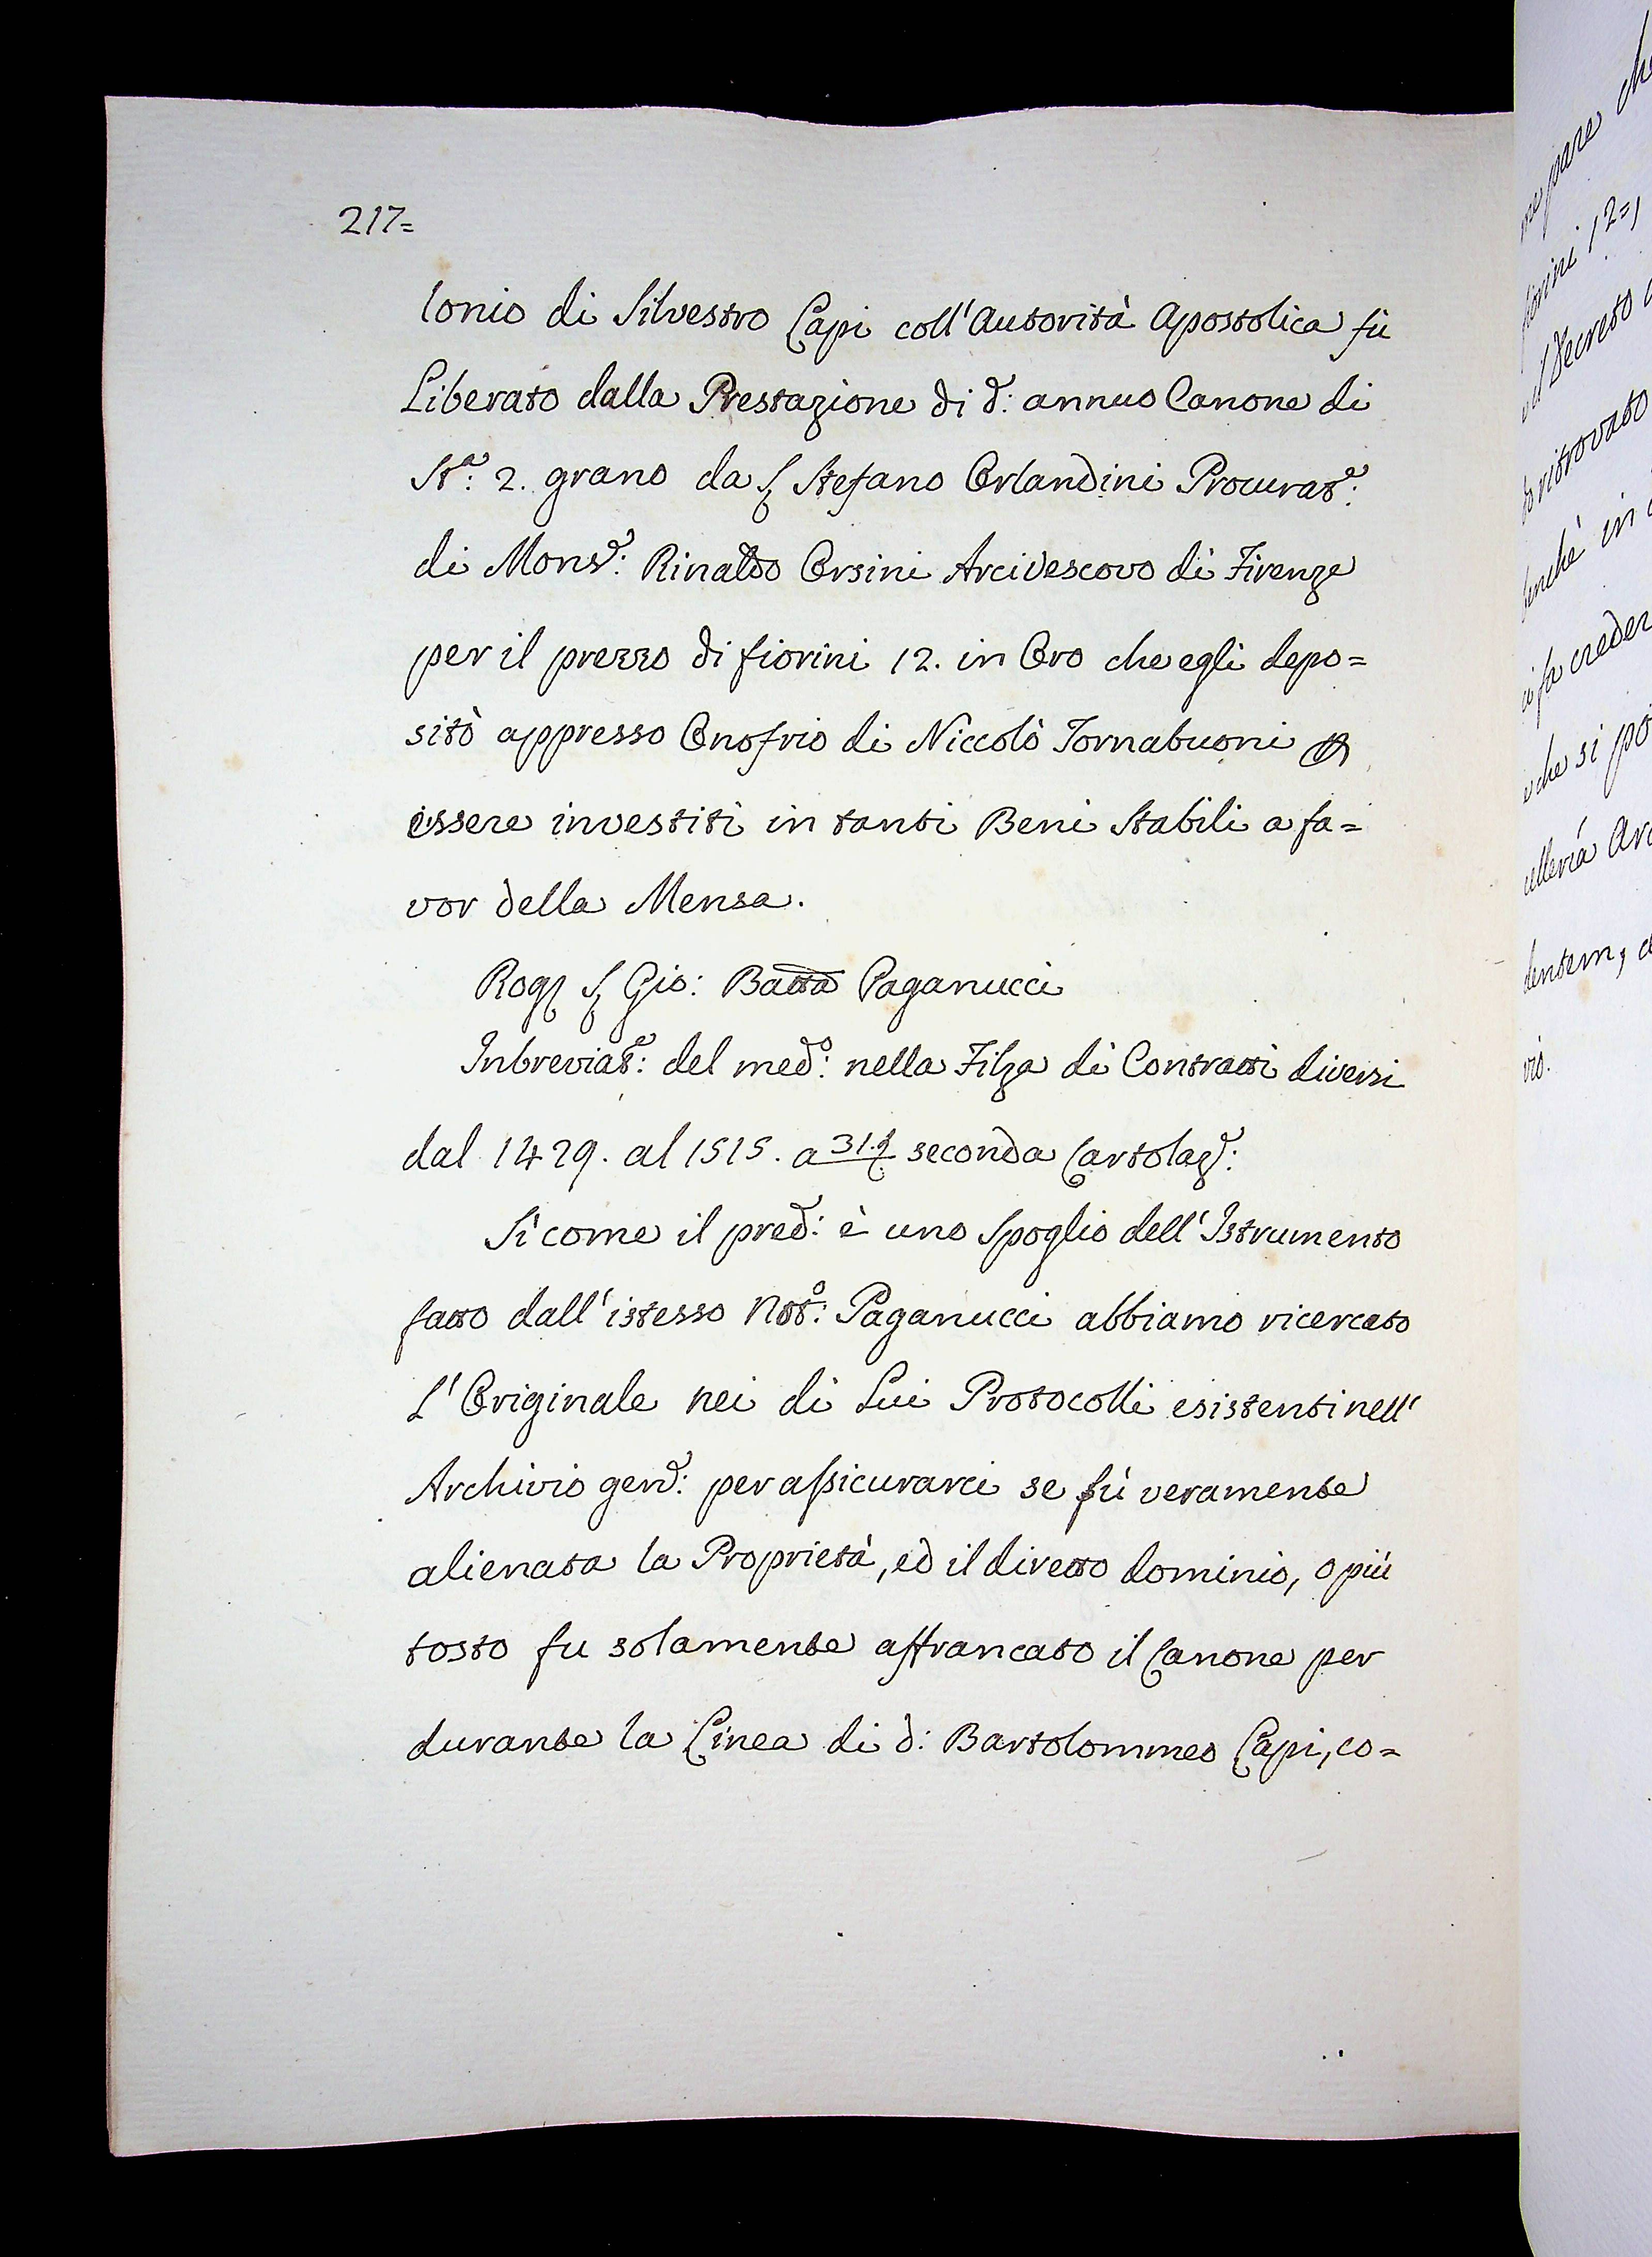 217=
lonio di Silvestro Capi coll'Autorità Apostolica fù
Liberato dalla Prestazione di d: annuo Canone di
Sta: 2. grano da S Stefano Orlandini Procurate:
di Monsr: Rinaldo Orsini Arcivescovo di Firenze
per il prezzo di fiorini 12. in Oro che egli depo=
sitò appresso Onofrio di Niccolò Tornabuoni
essere investiti in tanti Beni Stabili a fa=
vor della Mensa.
Rog S Gio: Batta Paganucci
Inbreviate: del medo: nella Filza di Contratti diversi
dal 1429. al 1515. a seconda Cartolaze:
Sìcome il pred: è uno Spoglio dell'Istrumento
fatto dall'istesso Noto: Paganucci abbiamo ricercato
L'Originale nei di Lui Protocolli esistenti nell'
Archivio gene: per assicurarci se fù veramente
alienata la Proprietà, ed il diretto dominio, o più
tosto fu solamente affrancato il Canone per
durante la Linea di d: Bartolommeo Capi, co=
me pare che
fiorini 12=,
il Decreto
ritrovato
in
fa creder
che si po
dentem,